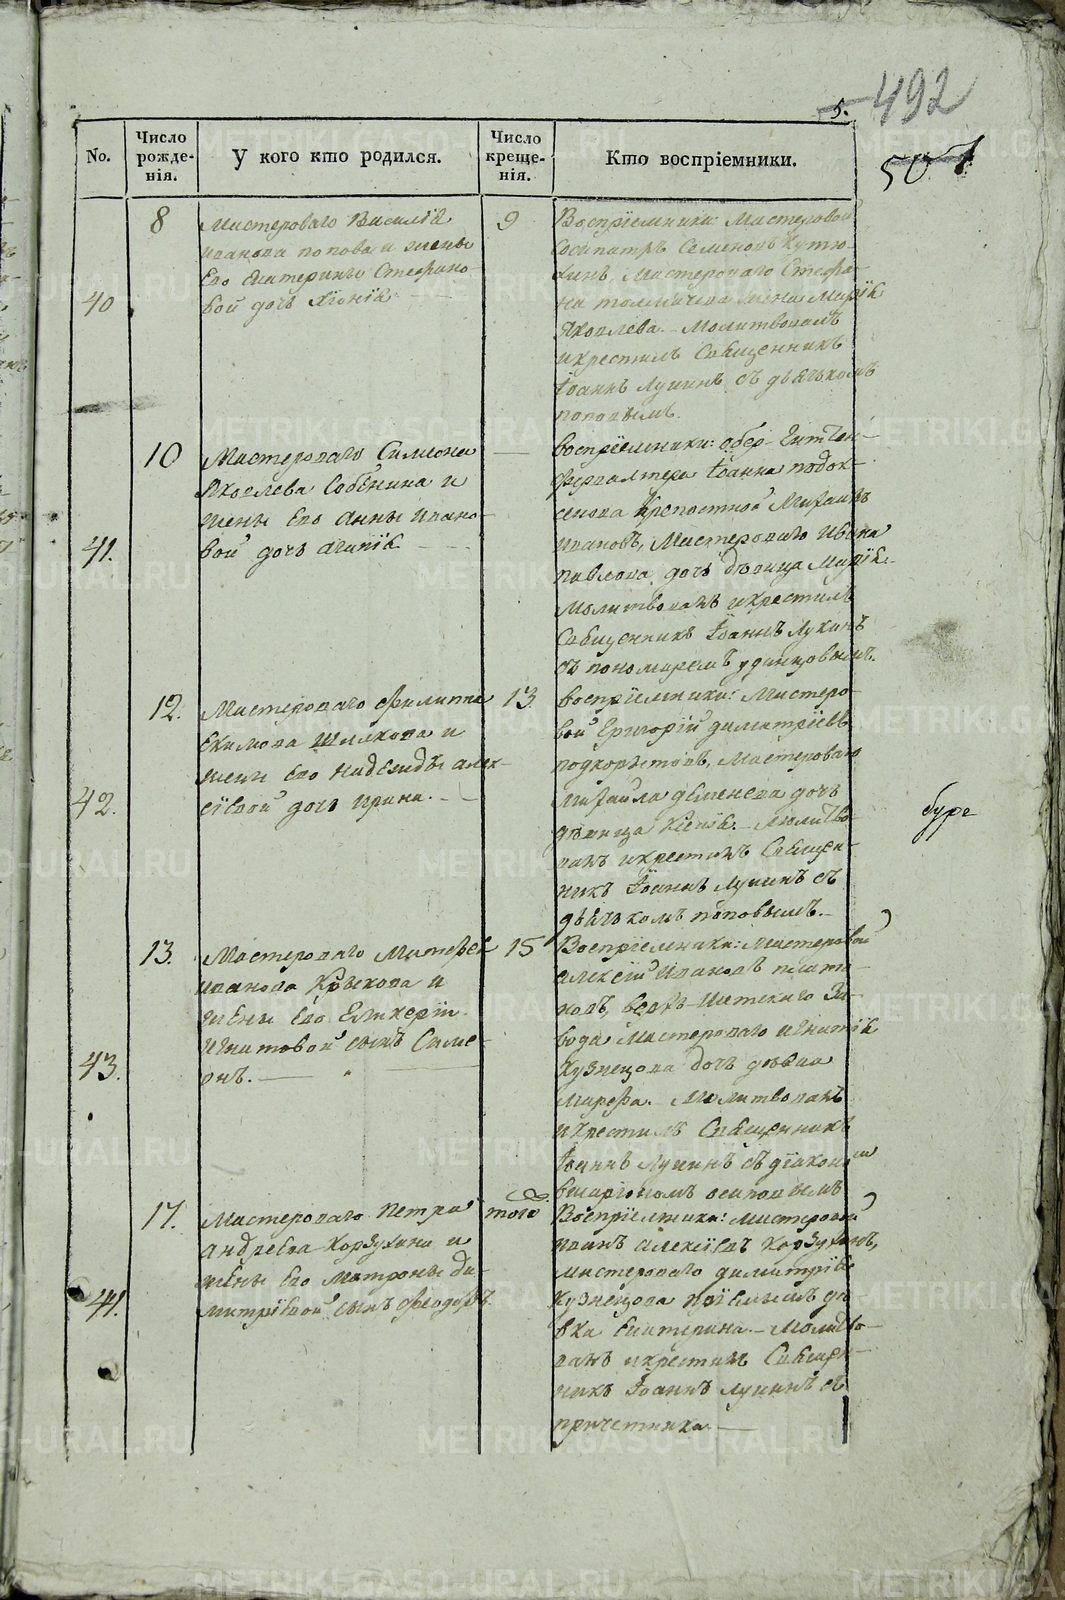 492
5.
501
No.
Число рожде-нія.
У кого кто родился.
Число креще-нія.
Кто воспріемники.
40
8
Мастероваго Василія
Иванова Попова и жены
Его Екатерины Стефано-
вой дочь Хіонія
9
Воспріемники Мастеровой
Сосипатръ Семеновъ
Мастероваго Стефа-
на Толмачева жена Марія
Яковлева. Молитвовалъ
и крестилъ Священникъ
Іоаннъ Лукинъ съ дьячькомъ
Поповымъ.
41.
10
Мастероваго Симеона
Яковлева Собенина и
жены Его Анны Ивано-
вой дочь Агапія
—
Воспріемники: обер Гиттен-
фервалтера Іоанна Подок-
сенова Крепостной Михаилъ
Ивановъ, Мастероваго Ивана
Павлова дочь дѣвица Марія.
Молитвовалъ и крестилъ
Священникъ Іоаннъ Лукинъ
съ пономаремъ Удинцовымъ.
42.
12.
Мастероваго Филиппа
Екимова Шляхова и
жены Его Надежды Алек-
сіевой дочь Ирина.
13.
Воспріемники: Мастеро-
вой Григорій Димитріевъ
Подкорытовъ, Мастероваго
Михайла Деменева дочь
дѣвица Ксенія. Молитво-
валъ и крестилъ Священ-
никъ Іоаннъ Лукинъ съ
дьячькомъ Поповымъ.
буре
43.
13.
Мастероваго Матфея
Иванова и
жены Его Гликеріи
Игнатовой сынъ Симе-
онъ.
15
Воспріемники: Мастеровой
Алексій Ивановъ Плата-
новъ, Верхъ-Исетскаго За-
вода Мастероваго Игнатія
Кузнецова дочь дѣвка
Марѳа. Молитвовалъ
и крестилъ Священникъ
Іоаннъ Лукинъ съ діакономъ
Осиповымъ
44.
17.
Мастероваго Петра
Андреева Корзухина и
жены Его Матроны Ди-
митріевой сынъ Феодоръ.
того
Воспріемники: Мастеровой
Иванъ Алексіевъ Корзухинъ,
Мастероваго Димитрія
Кузнецова пріемышъ дѣ-
вка Екатерина. Молитво-
валъ и крестилъ Священ-
никъ Іоаннъ Лукинъ съ
причетники
METRIKI-GASO-URAL.RU